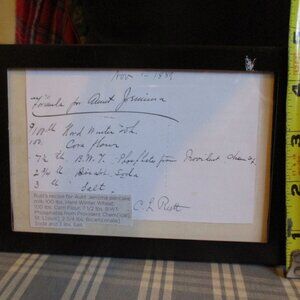 Nov 1 - 1889
Formula for Aunt Jemima
100 lb Hard Winter Wh.
100. Corn flour
7½ lb B.W.T. Phosphate from Provident Chem
2¾ lb Bicarb. Soda
3 lb Salt.
C L Rutt
Rutt's recipe for Aunt Jemima pancake
mix: 100 lbs. Hard Winter Wheat,
100 lbs. Corn Flour, 7 1/2 lbs. B.W.T.
Phosphates from Provident Chem(ical),
St. L(ouis), 2 3/4 lbs. Bicarb(onate)
Soda and 3 lbs. Salt.